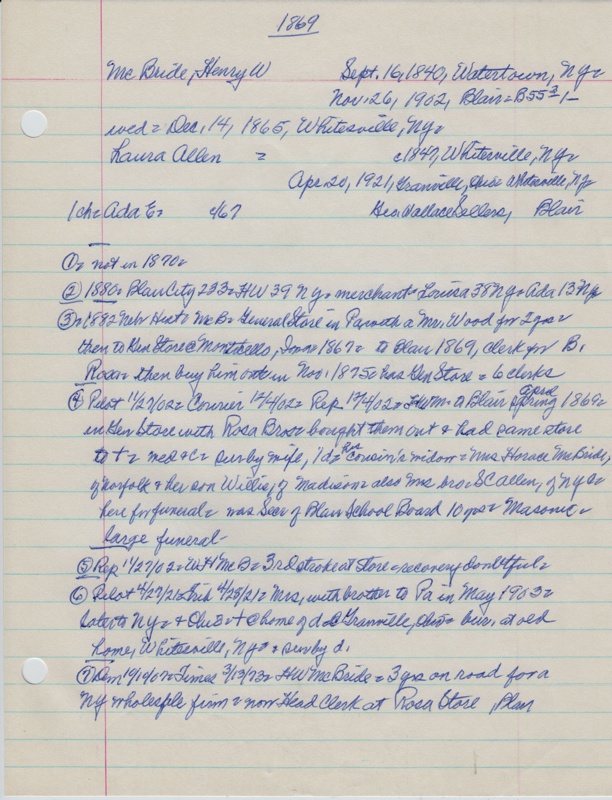 1869
McBride, Henry W Sept. 16, 1840, Watertown, Ny=
Nov. 26, 1902, Blair=B55
wed= Dec. 14, 1865, Whitesville, Ny=
Laura Allen = c1847, Whitesville, Ny=
Apr. 20, 1921, Granville, Ohio= Whitesville, Ny
1 ch= Ada E= c/67 Geo. Wallace Sellers, Blair
① = not in 1870=
② 1880= Blair City 233= HW 39 Ny= merchant= Louisa 38 Ny= Ada 13 Ny
③= 1882 Nebr Hist= McB= General Store in Pa with a Mr. Wood for 2 yrs=
then to Gen Store @ Monticello, Iowa= 1867= to Blair 1869, clerk for B.
Rosa= then buy him out in Nov. 1875= has Gen Store= 6 clerks
④ Pilot 11/27/02= Courier 12/4/02= Rep 12/4/02= HWM= to Blair April spring 1869=
in Gen Store with Rosa Bros= bought them out & had same store
to += med & C= sur by wife, 1 d= his cousin's widow= Mrs Horace McBride,
of Norfolk & her son Willis, of Madison= also Mrs. bro. SC Allen, of Ny=
here for funeral= was Secr of Blair School Board 10 yrs= Masonic=
large funeral
⑤ Rep 11/27/02= WH McB= 3rd stroke at Store= recovery doubtful=
⑥ Pilot 4/27/21= Trib 4/25/21= Mrs, with brother to Pa in May 1903=
later to Ny= & Ohio= + @ home of d @ Granville, Ohio= bur. at old
home, Whitesville, Ny= = sur by d.
⑦ Times 3/13/73= HW McBride= 3 yrs on road for a
Ny wholesale firm= now Head Clerk at Rosa Store, Blair